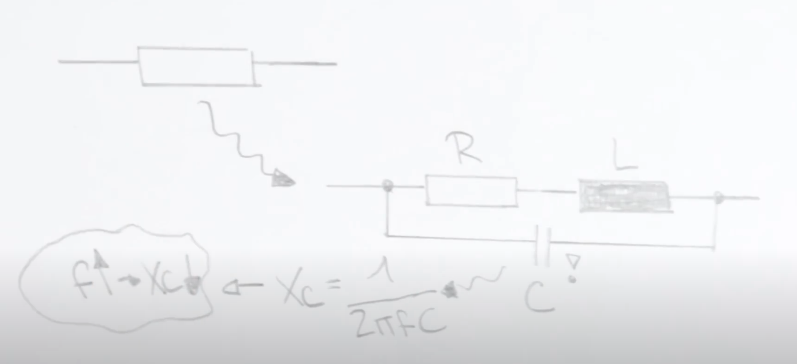 R
L
f↑→Xc↓ ← Xc = 1/2πfC
C!